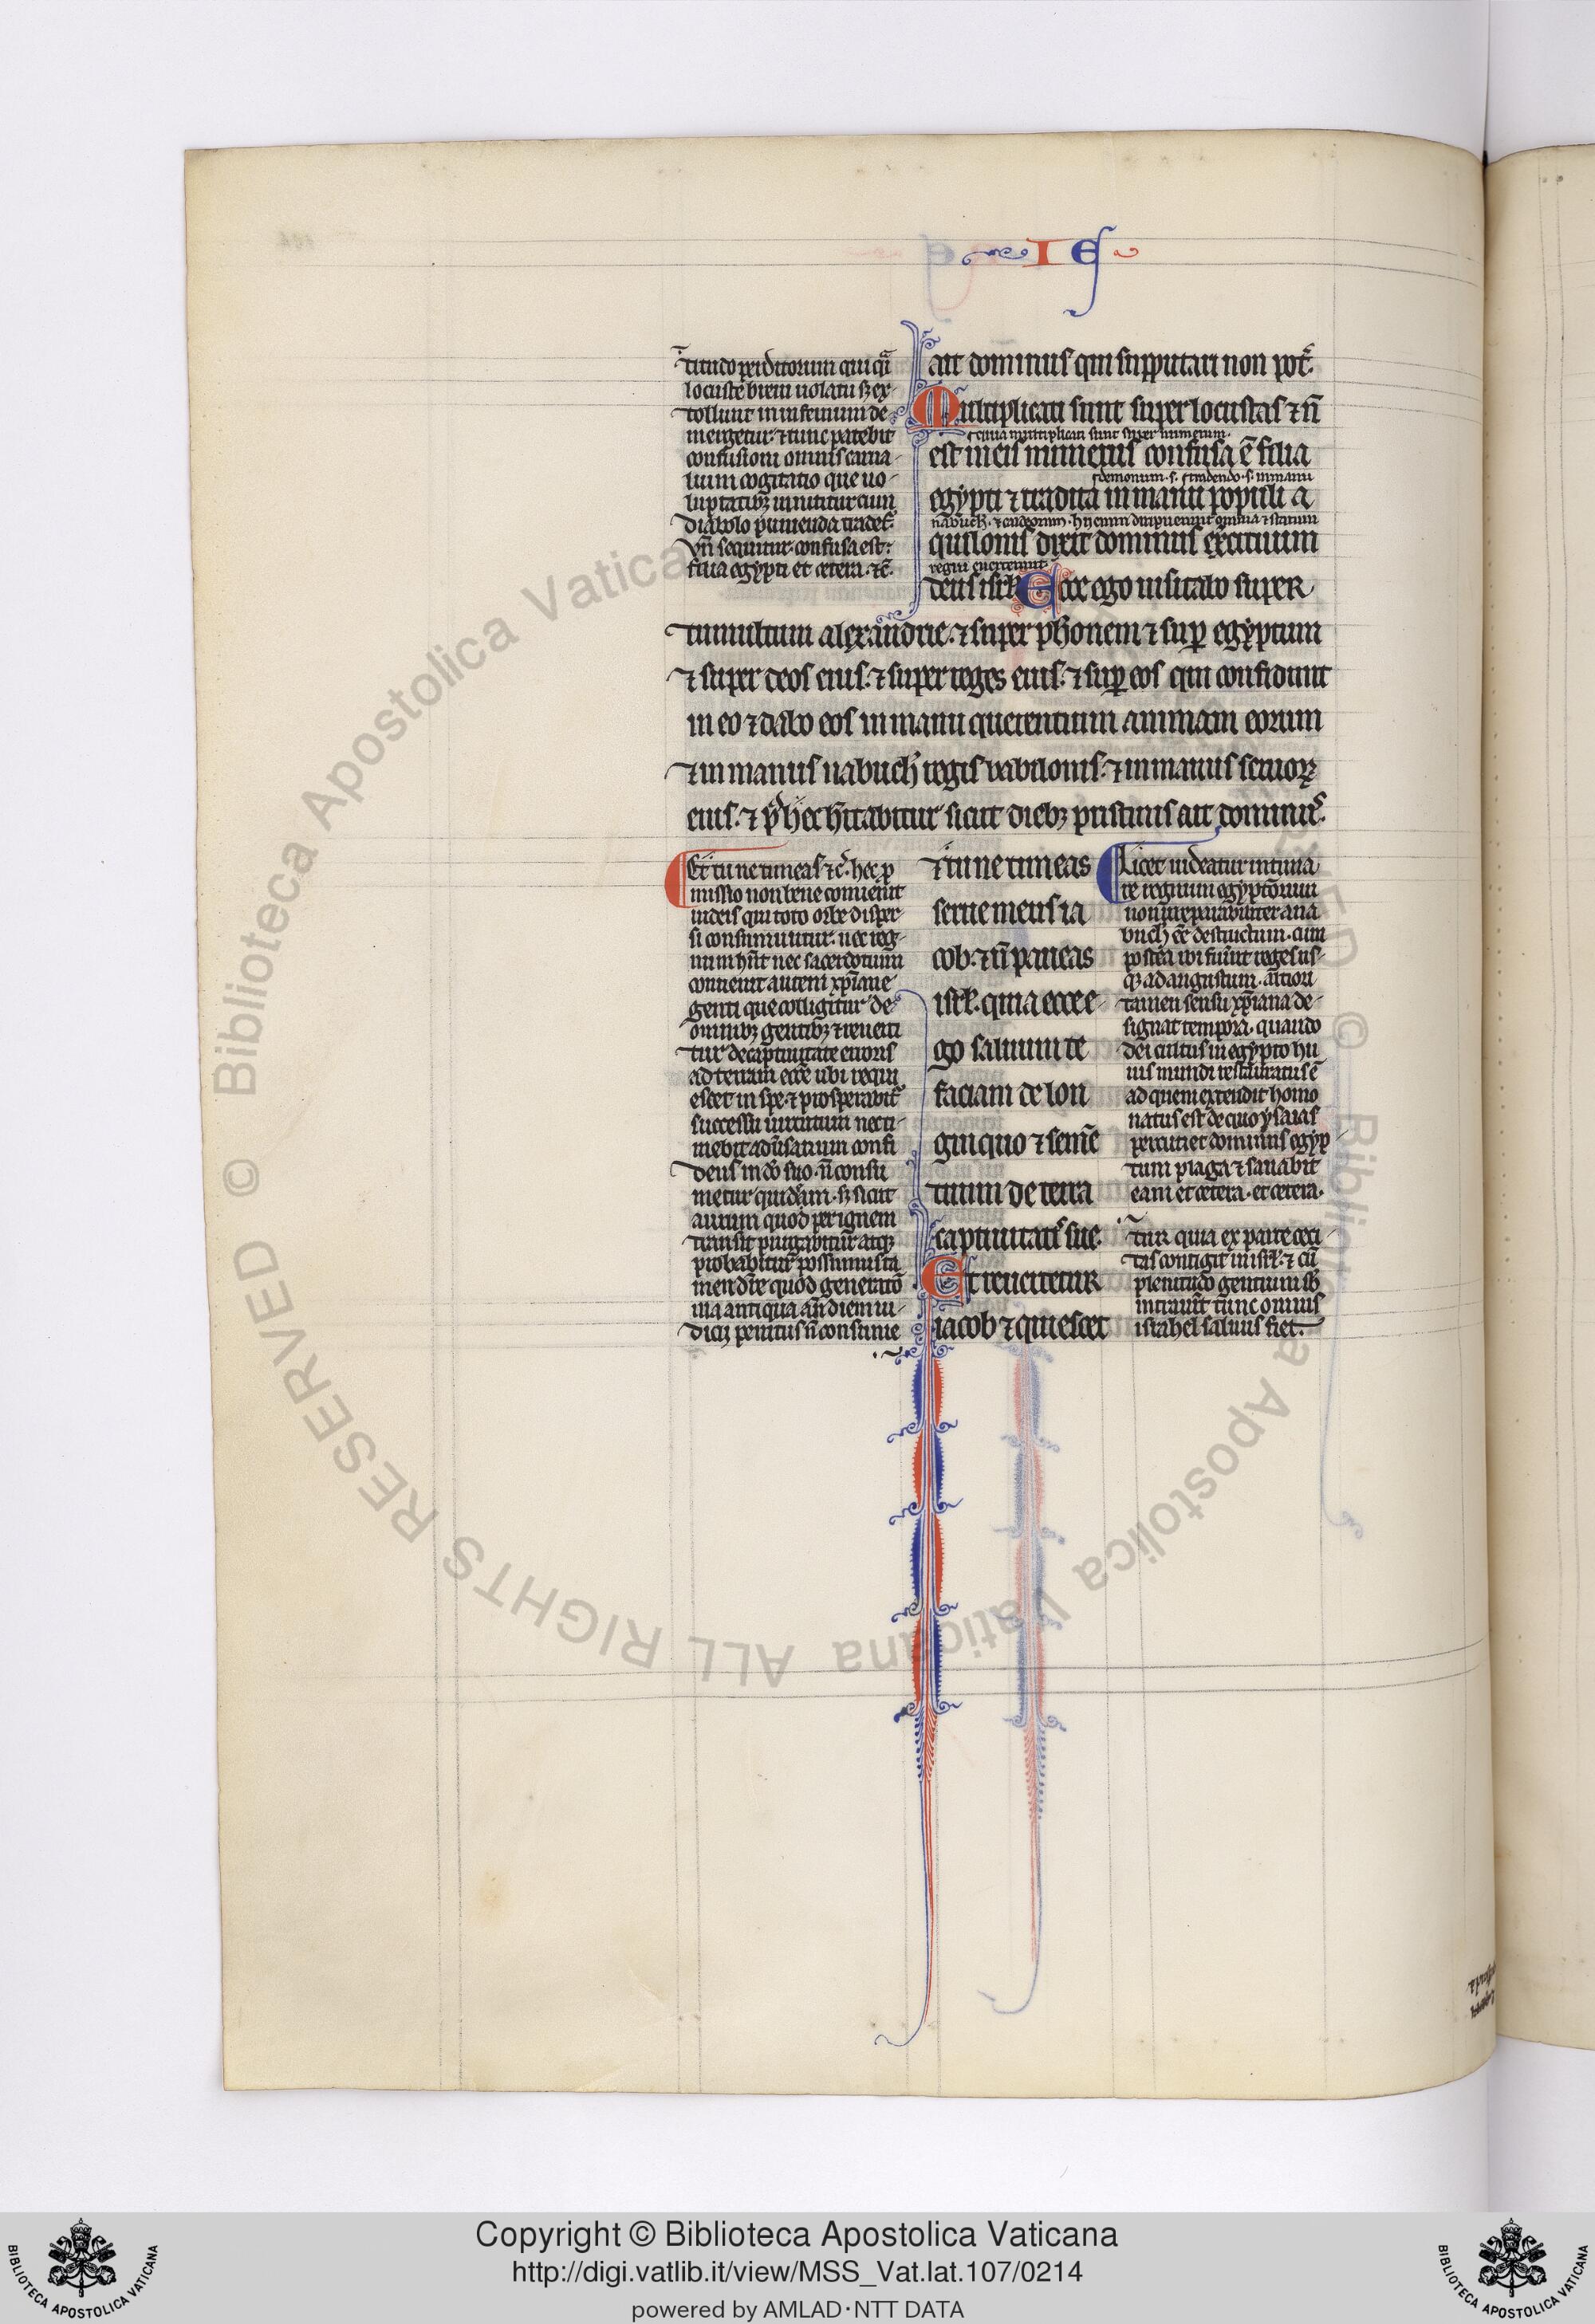 I E
titudo perditorum qui q̃i
locuste breui uolatu ⁊ ex-
tollunt in infernum de
mergetur. ⁊ tunc patebit
confusioni omnis carna-
lium cogitatio que uo-
luptatibꝫ innititur cum
diabolo punienda tradet᷑.
vñ sequitur. confusa est.
filia egypti et cetera. ⁊c̄.
ait dominus qui supputari non pot᷑.
Multiplicati sunt super locustas ⁊ ñ
⁊ cuius multiplicati sunt super numerum.
est in eis numerus confusa ē filia
demonum .s. .s. in manu
egypti ⁊ tradita in manu populi a
nabuch. ⁊ caldeorum. hij enim diripuerunt omnia ⁊ statum
quilonis dixit dominus exercituum
regni euerterunt.
deus isrl̃. Ecce ego uisitabo super
tumultum alexandrie. ⁊ super pharonem ⁊ sup̲ egyptum
⁊ super deos eius. ⁊ super reges eius. ⁊ sup̲ eos qui confidunt
in eo ⁊ dabo eos in manu querentium animam eorum
⁊ in manus nabuch̃ regis babilonis. ⁊ in manus seruoꝝ
eius. ⁊ p᷑ hec h̃itabitur sicut diebꝫ pristinis ait dominus.
Et tu ne timeas. ⁊c̃. hec p̲
missio non bene conuenit
iudeis qui toto orbe disper-
si consumuntur. nec reg-
num hñt nec sacerdotium
conuenit autem xp̃iane
genti que colligitur de
omnibꝫ gentibꝫ ⁊ reuerti
tur de captiuitate erroris
ad terram ecc̃e ubi requi
escet in spe. ⁊ prosperabit᷑
successu uirtutum nec ti-
mebit adũsarium confi
dens in dõ suo. ñ consu
metur quidem. sꝫ sicut
aurum quod per ignem
transit purgabitur atqꝫ
probabitur. possumus ta
men dĩe quod generatõ
illa antiqua añ diem iu-
dicij penitus ñ consume
⁊ tu ne timeas
serue meus ia
cob. ⁊ ñ paueas
isrl̃. quia ecce e-
go saluum te
faciam de lon
ginquo ⁊ semẽ
tuum de terra
captiuitatis sue.
Et reuertetur
iacob ⁊ quiescet
Licet uideatur intima
re regnum egyptiorum
non irreparabiliter a na
buch̃ eẽ destructum. cum
postea ibi fuerint reges us-
qꝫ ad augustum. altiori
tamen sensu xp̃iana de-
signat tempora. quando
dei cultus in egypto hu
ius mundi restauratus ē
ad quem extendit homo
natus est de quo ysaias
percutiet dominus egyp-
tum plaga ⁊ sanabit
eam et cetera. et cetera.
tur quia ex parte ceci-
tas contigit in isrl̃. ⁊ cũ
plenitudo gentium sb̃
intrauit tunc omnis
israhel saluus fiet.
© Biblioteca Apostolica Vaticana ALL RIGHTS RESERVED
Copyright © Biblioteca Apostolica Vaticana
http://digi.vatlib.it/view/MSS_Vat.lat.107/0214
powered by AMLAD·NTT DATA
BIBLIOTECA APOSTOLICA VATICANA
BIBLIOTECA APOSTOLICA VATICANA